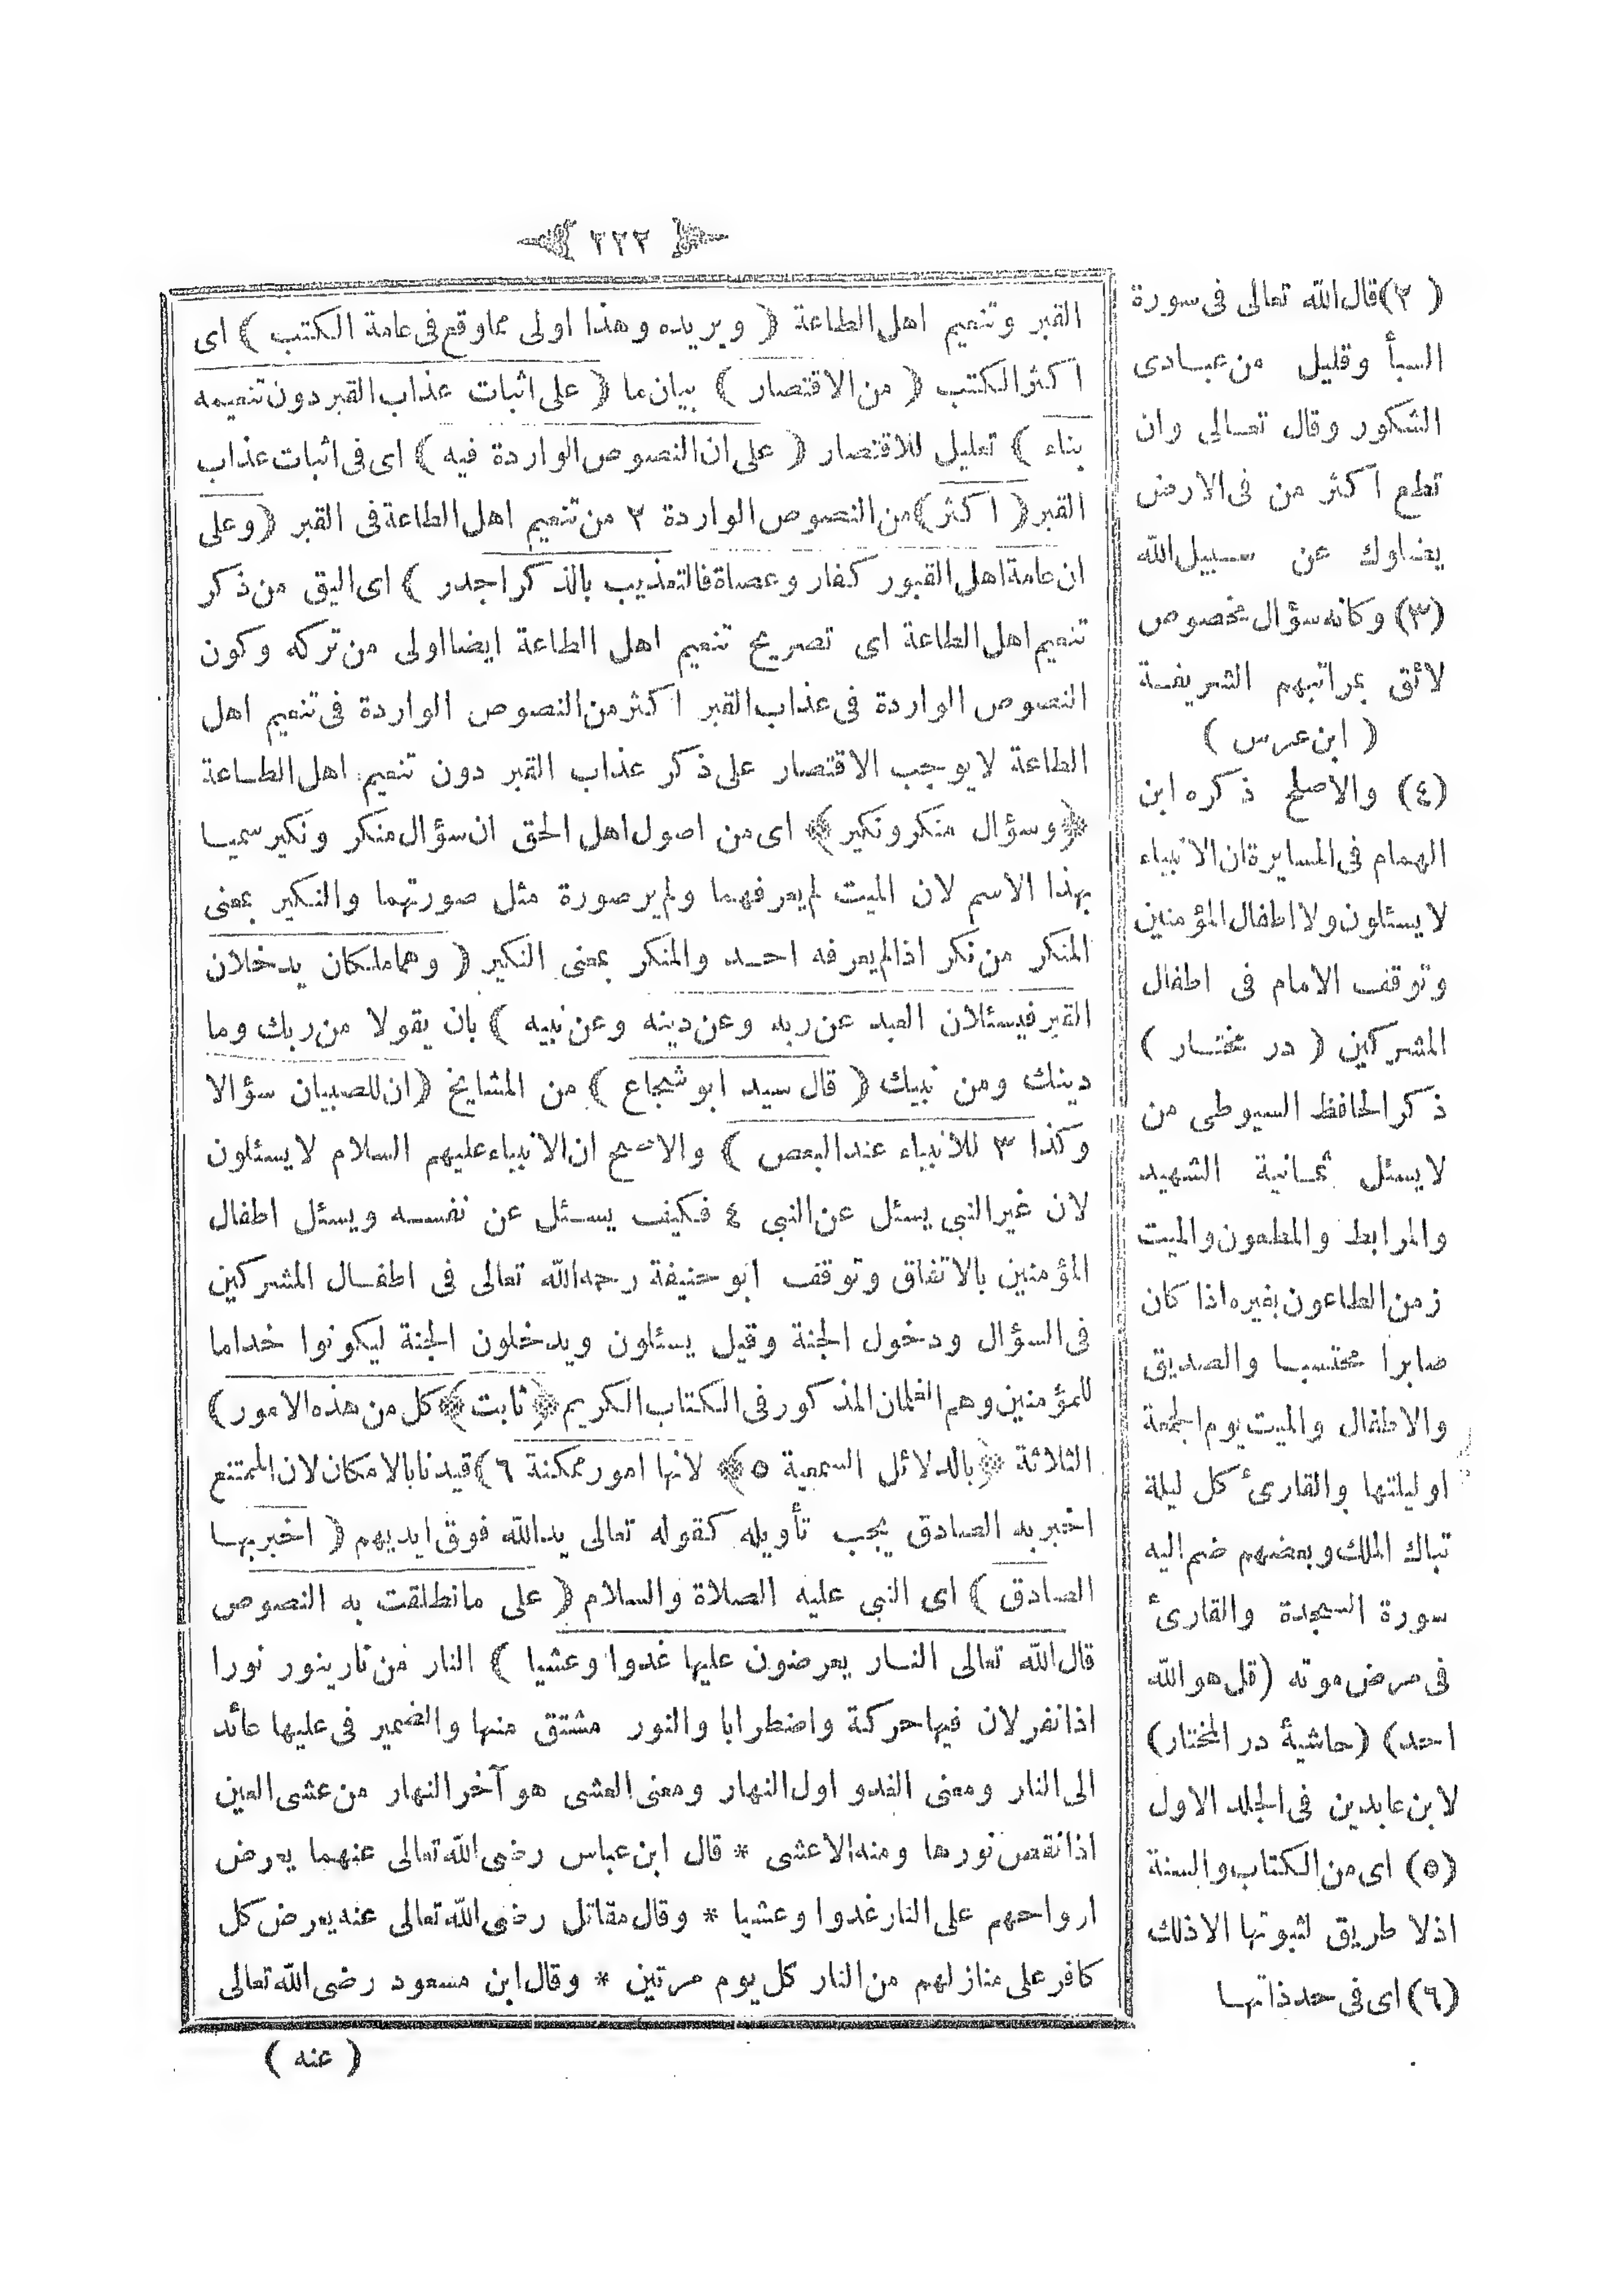 ٢٢٢
القبر وتنعيم اهل الطاعة ( ويريده وهذا اولى مماوقع فى عامة الكتب ) اى
اكثر الكتب ( من الاقتصار ) بيان ما ( على اثبات عذاب القبر دون تنعيمه
بناء ) تعليل للاقتصار ( على ان النصوص الواردة فيه ) اى فى اثبات عذاب
القبر ( اكثر ) من النصوص الواردة ٢ من تنعيم اهل الطاعة فى القبر ( وعلى
ان عامة اهل القبور كفار وعصاة فالتعذيب بالذكر اجدر ) اى اليق من ذكر
تنعيم اهل الطاعة اى تصريح تنعيم اهل الطاعة ايضا اولى من تركه وكون
النصوص الواردة فى عذاب القبر اكثر من النصوص الواردة فى تنعيم اهل
الطاعة لايوجب الاقتصار على ذكر عذاب القبر دون تنعيم اهل الطاعة
﴿ وسؤال منكر ونكير ﴾ اى من اصول اهل الحق ان سؤال منكر ونكير سميا
بهذا الاسم لان الميت لم يعرفهما ولم ير صورة مثل صورتهما والنكير بمعنى
المنكر من نكر اذا لم يعرفه احد والمنكر بمعنى النكير ( وهما ملكان يدخلان
القبر فيسئلان العبد عن ربه وعن دينه وعن نبيه ) بان يقولا من ربك وما
دينك ومن نبيك ( قال سيد ابو شجاع ) من المشايخ ( ان للصبيان سؤالا
وكذا ٣ للانبياء عند البعض ) والاصح ان الانبياء عليهم السلام لايسئلون
لان غير النبى يسئل عن النبى ٤ فكيف يسئل عن نفسه ويسئل اطفال
المؤمنين بالاتفاق وتوقف ابو حنيفة رحمه الله تعالى فى اطفال المشركين
فى السؤال ودخول الجنة وقيل يسئلون ويدخلون الجنة ليكونوا خداما
للمؤمنين وهم الغلمان المذكور فى الكتاب الكريم ﴿ ثابت ﴾ كل من هذه الامور )
الثلاثة ﴿ بالدلائل السمعية ٥ ﴾ لانها امور ممكنة ٦ ) قيدنا بالامكان لان الممتنع
اخبر به الصادق يجب تأويله كقوله تعالى يد الله فوق ايديهم ( اخبر بها
الصادق ) اى النبى عليه الصلاة والسلام ( على مانطلقت به النصوص
قال الله تعالى النار يعرضون عليها غدوا وعشيا ) النار من نار ينور نورا
اذا نفر لان فيها حركة واضطرابا والنور مشتق منها والضمير فى عليها عائد
الى النار ومعنى الغدو اول النهار ومعنى العشى هو آخر النهار من عشى العين
اذا نقص نورها ومنه الاعشى * قال ابن عباس رضى الله تعالى عنهما يعرض
ارواحهم على النار غدوا وعشيا * وقال مقاتل رضى الله تعالى عنه يعرض كل
كافر على منازلهم من النار كل يوم مرتين * وقال ابن مسعود رضى الله تعالى
( عنه )
( ٢ ) قال الله تعالى فى سورة
السبأ وقليل من عبادى
الشكور وقال تعالى وان
تطع اكثر من فى الارض
يضلوك عن سبيل الله
(٣) وكانه سؤال مخصوص
لائق بمراتبهم الشريفة
( ابن عرس )
(٤) والاصح ذكره ابن
الهمام فى المسايرة ان الانبياء
لايسئلون ولا اطفال المؤمنين
وتوقف الامام فى اطفال
المشركين ( در مختار )
ذكر الحافظ السيوطى من
لايسئل ثمانية الشهيد
والمرابط والمطعون والميت
زمن الطاعون بغيره اذا كان
صابرا محتسبا والصديق
والاطفال والميت يوم الجمعة
او ليلتها والقارئ كل ليلة
تباك الملك وبعضهم ضم اليه
سورة السجدة والقارئ
فى مرض موته (قل هو الله
احد) (حاشية در المختار)
لابن عابدين فى الجلد الاول
(٥) اى من الكتاب والسنة
اذلا طريق لثبوتها الا ذلك
(٦) اى فى حد ذاتها